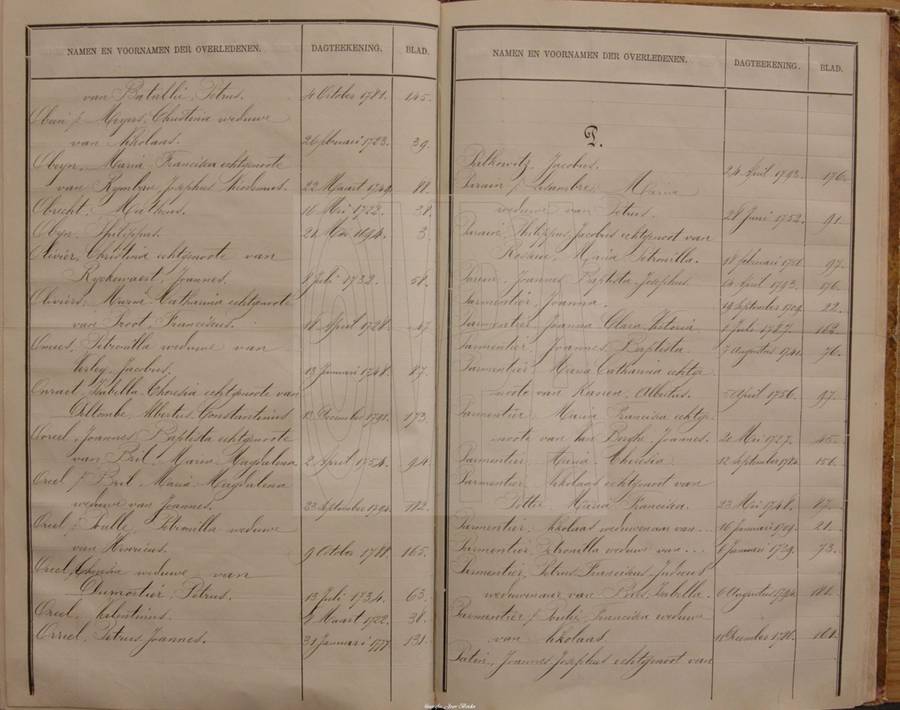 NAMEN EN VOORNAMEN DER OVERLEDENEN. DAGTEEKENING. BLAD.
van Bataille, Petrus. 4 October 1781. 145.
Obein f Meyers, Christina weduwe
van Nikolaas. 26 februari 1723. 39.
Obeyn, Maria Francisca echtgenoote
van Rymbru, Josephus Nicodemus. 22 Maart 1749. 88.
Obrecht, Matheus. 16 Mei 1722. 38.
Obyn, Philippus. 21 1694. 3.
Olivier, Christina echtgenoote van
Ryckewaert, Joannes. 8 Juli 1732. 58.
Oliviers, Maria Catharina echtgenoote
van Proot, Franciscus. 18 April 1728. 47.
Omees, Petronilla weduwe van
Verley, Jacobus. 13 Januari 1748. 87.
Onraet, Isabella Theresia echtgenoote van
Delcombe, Albertus Constantinus 13 December 1791. 173.
Oreel, Joannes Baptista echtgenoote
van Bril, Maria Magdalena 2 April 1754. 94.
Oreel f Bril, Maria Magdalena
weduwe van Joannes. 23 September 1794. 182.
Oreel f Soulle, Petronilla weduwe
van Henricus. 9 October 1788. 165.
Oreel, Theresia weduwe van
Dumortier, Petrus. 13 Juli 1734. 63.
Oreel, Valentinus. 9 Maart 1722. 38.
Orreel, Petrus Joannes. 31 Januari 1777. 131.
NAMEN EN VOORNAMEN DER OVERLEDENEN. DAGTEEKENING. BLAD.
P.
Palkowitz, Jacobus. 24 April 1793. 176.
Parain f Delambre, Maria
weduwe van Petrus. 28 Juni 1752. 91.
Parain, Philippus Jacobus echtgenoot van
Rosseeu, Maria Petronilla. 18 februari 1756. 97.
Parein, Joannes Baptista Josephus. 14 April 1793. 176.
Parmentier, Joanna. 19 September 1709. 22.
Parmentier, Joanna Clara Victoria. 1 Julie 1787. 162.
Parmentier, Joannes Baptista. 7 Augustus 1741. 76.
Parmentier, Maria Catharina echtge
noote van Kasien, Albertus. 5 April 1756. 97.
Parmentier, Maria Francisca echtge
noote van den Berghe, Joannes. 21 Mei 1727. 45.
Parmentier, Theresia. 12 September 1784. 156.
Parmentier, Nikolaas echtgenoot van
Potter, Maria Francisca. 23 Mei 1748. 87.
Parmentier, Nikolaas weduwenaar van ... 16 Januari 1709. 21.
Parmentier, Petronilla weduwe van ... 6 Januari 1739. 73.
Parmentier, Petrus Franciscus Judocus
weduwenaar van Buse, Isabella. 6 Augustus 1794. 181.
Parmentier f Poutie, Francisca weduwe
van Nikolaas. 11 December 1786. 161.
Patin, Joannes Josephus echtgenoot van